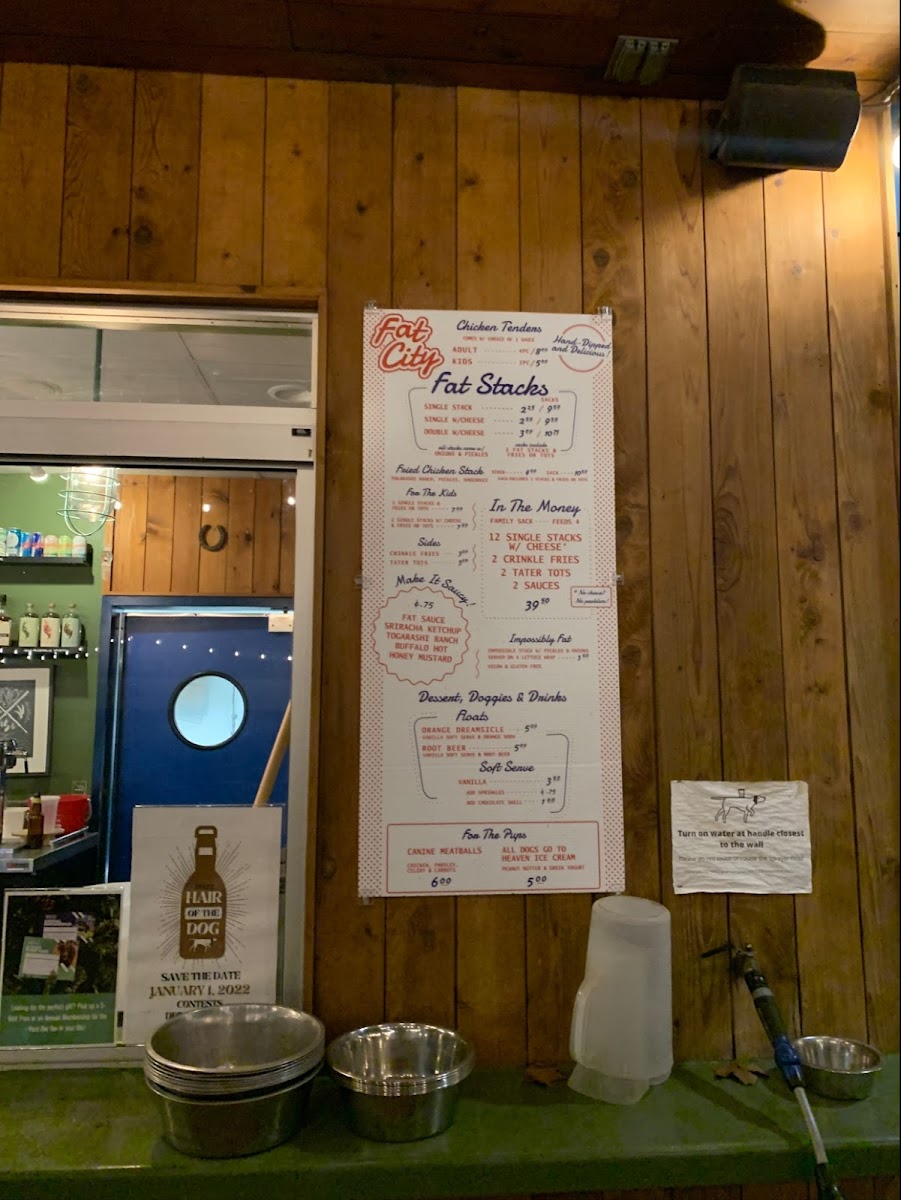 Fat
City
Chicken Tenders
COMES W/ CHOICE OF 1 SAUCE
ADULT 4PC/8
KIDS 2PC/5
Hand-Dipped
and Delicious!
Fat Stacks
SACKS
SINGLE STACK
SINGLE W/CHEESE
DOUBLE W/CHEESE
all stacks come w/
ONIONS & PICKLES
sacks include
2 FAT STACKS &
FRIES OR TOTS
Fried Chicken Stack
TOGARASHI RANCH, PICKLES,
For The Kids
1 SINGLE STACKS &
FRIES OR TOTS
2 SINGLE STACKS W/ CHEESE
& FRIES OR TOTS
Sides
CRINKLE FRIES
TATER TOTS
In The Money
FAMILY SACK FEEDS 4
12 SINGLE STACKS
W/ CHEESE*
2 CRINKLE FRIES
2 TATER TOTS
2 SAUCES
39 50
* No cheese?
No problem!
Make It Saucy!
+.75
FAT SAUCE
SRIRACHA KETCHUP
TOGARASHI RANCH
BUFFALO HOT
HONEY MUSTARD
Impossibly Fat
IMPOSSIBLE STACK W/ PICKLES & ONIONS
SERVED ON A LETTUCE WRAP
VEGAN & GLUTEN FREE
Dessert, Doggies & Drinks
Floats
ORANGE DREAMSICLE
VANILLA SOFT SERVE & ORANGE SODA
ROOT BEER
VANILLA SOFT SERVE & ROOT BEER
Soft Serve
VANILLA
ADD SPRINKLES +.75
ADD CHOCOLATE SHELL
For The Pups
CANINE MEATBALLS
CHICKEN, PARSLEY,
CELERY & CARROTS
6 00
ALL DOGS GO TO
HEAVEN ICE CREAM
PEANUT BUTTER & GREEK YOGURT
5 00
Turn on water at handle closest
to the wall
HAIR
OF THE
DOG
SAVE THE DATE
JANUARY 1, 2022
CONTESTS
Looking for the perfect gift? Pick up a